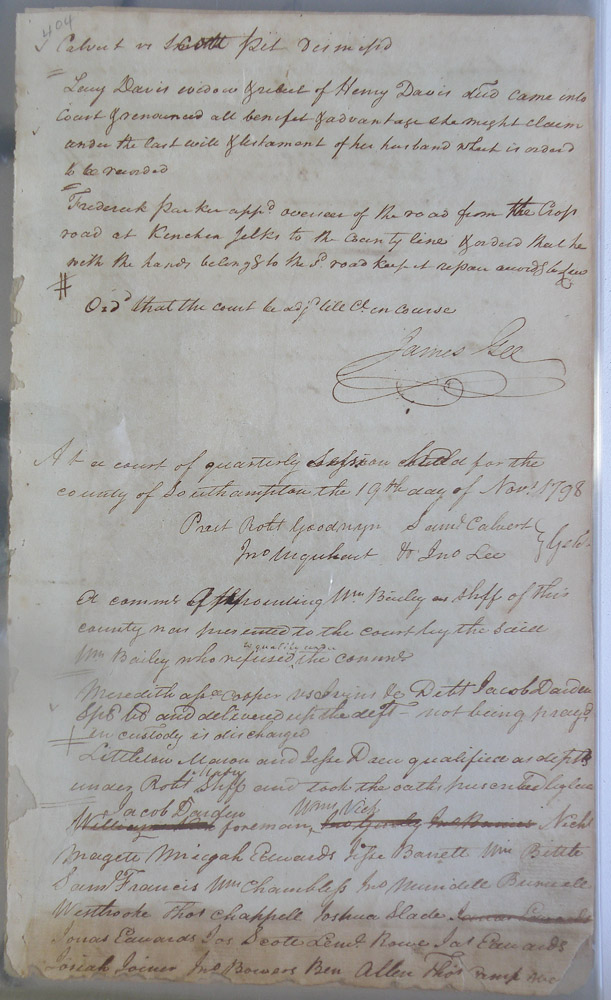 404
Calvert vs Scott pet Desmis'd
Lucy Davis widow & relect of Henry Davis decd came into
Court & renounced all benefit & advantage she might claim
under the last will & testament of her husband which is orderd
to be recorded
Frederick Parker appd overseer of the road from the Cross
road at Kinchen Jelks to the County line & orderd that he
with the hands belong'g to the sd road keep it repair accord'g to Law
Ord that the court be adjd till Ct in course
James Gee
At a court of quarterly session held for the
county of Southampton the 19th day of Novr 1798
Prest Robt Goodwyn Saml Calvert
Jno Urquhart & Jno Lee
A commn appointing Wm Bailey as Shff of this
county was presented to the court by the said
to qualify under
Wm Bailey who refused the commn
Meredith assee Cooper vs Ivy &c Debt Jacob Darden
Spl bl and delivered up the deft not being pray'd
in custody is discharged
Littleton Mason and Jesse Drew qualified as depts
under Robt Shff and took the oaths prescribed by law
Jacob Darden Wm Vick
foreman, Nichs
Magett Micajah Edwards Jesse Barrett Wm Bittle
Saml Francis Wm Chambless Jno Mundell Burwell
Westbrooke Thos Chappell Joshua Slade
Jonas Edwards Jos Scott Leml Rowe Jas Edwards
Josiah Joiner Jno Bowers Ben Allen Thos